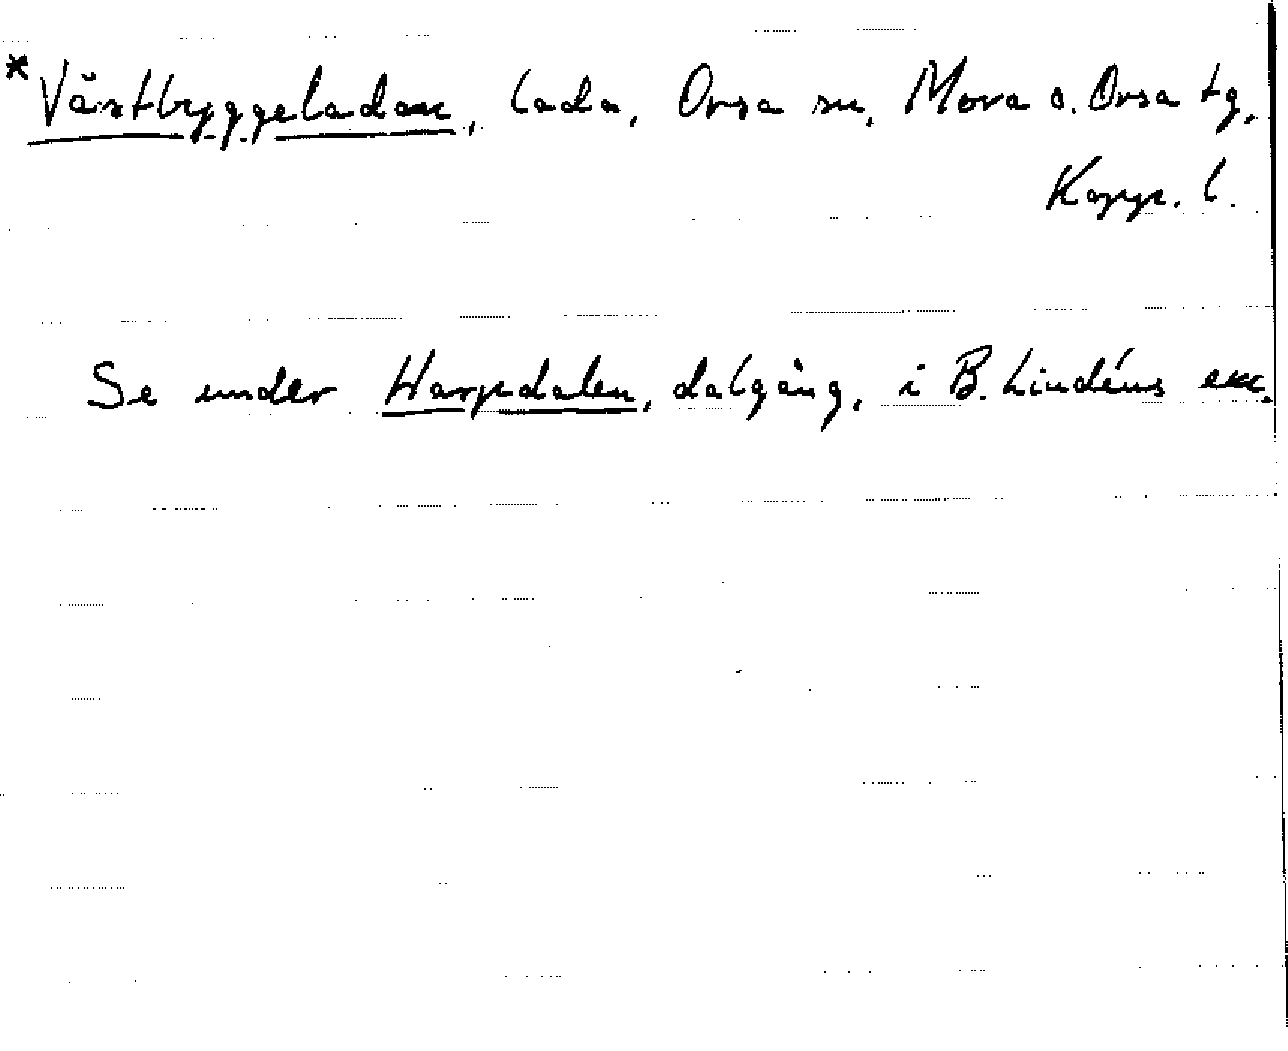 *Västbyggeladan, lada, Orsa sn, Mora o. Orsa tg,
Kopp. l.
Se under Harpdalen, dalgång, i B. Lindéns exc.